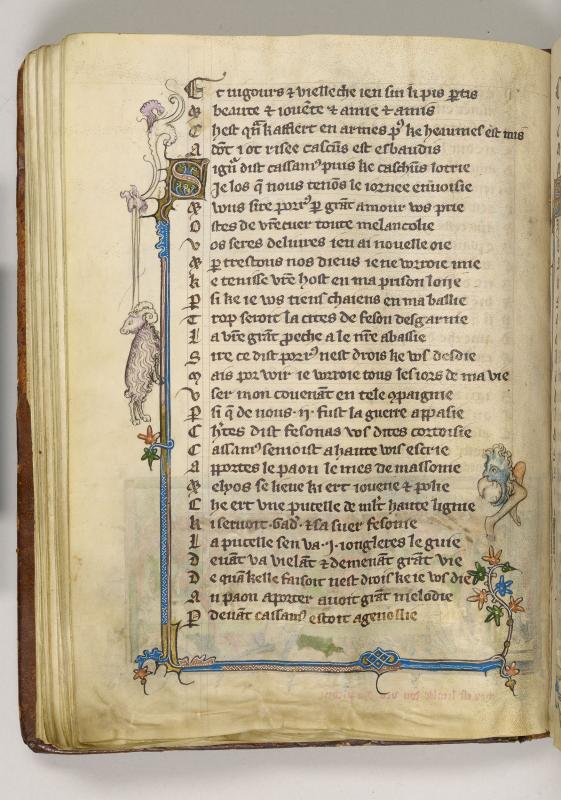 Et uigours & vielleche ien sui li pis ptis
& beaute & iouēte & amie & amis
Chest qn̄ kaffiert en armes pʳ ke hemmes est mis
Adōt i ot risee cascūs est esbaudis
Signʳ dist cassamꝰ puis ke caschūs lotrie
Je los q̄ nous tenōs le iornee enuoisie
& vous sire porrꝰ p grāt amour vos prie
Ostes de vr̄e cuer toute melancolie
Vos seres deliures ien ai nouelle oie
& p trestous nos dieus ie ne vorroie mie
Ke tenisse vr̄e host en ma prison lonie
Psi ke ie vos tieng chaiens en ma baillie
Trop seroit la cites de feson desgarnie
La vr̄e grāt peche a le nr̄e abassie
Sire ce dist porrꝰ nest drois ke vos desdie
Mais por voir ie vorroie tous les iors de ma vie
Vser mon couenāt en tele ꝯpaignie
Psi q̄ de nous ·ii· fust la guerre appasie
Chr̄tes dist fesonas vos dites cortoisie
Caissamꝰ senioist a haute vois escrie
Apportes le paon le mes de maissonie
& elyos se lieue ki ert iouene & polie
Che ert vne pucelle de ml't haute lignie
Ki seruoit ·bad'· & sa suer fesonie
La pucelle sen va ·i· iongleres le guie
Deuāt va vielāt & demenāt grāt vie
De quākelle faisoit nest drois ke ie vos die
Au paon aporter auoit grāt melodie
Pdeuāt caisamꝰ estoit agenollie